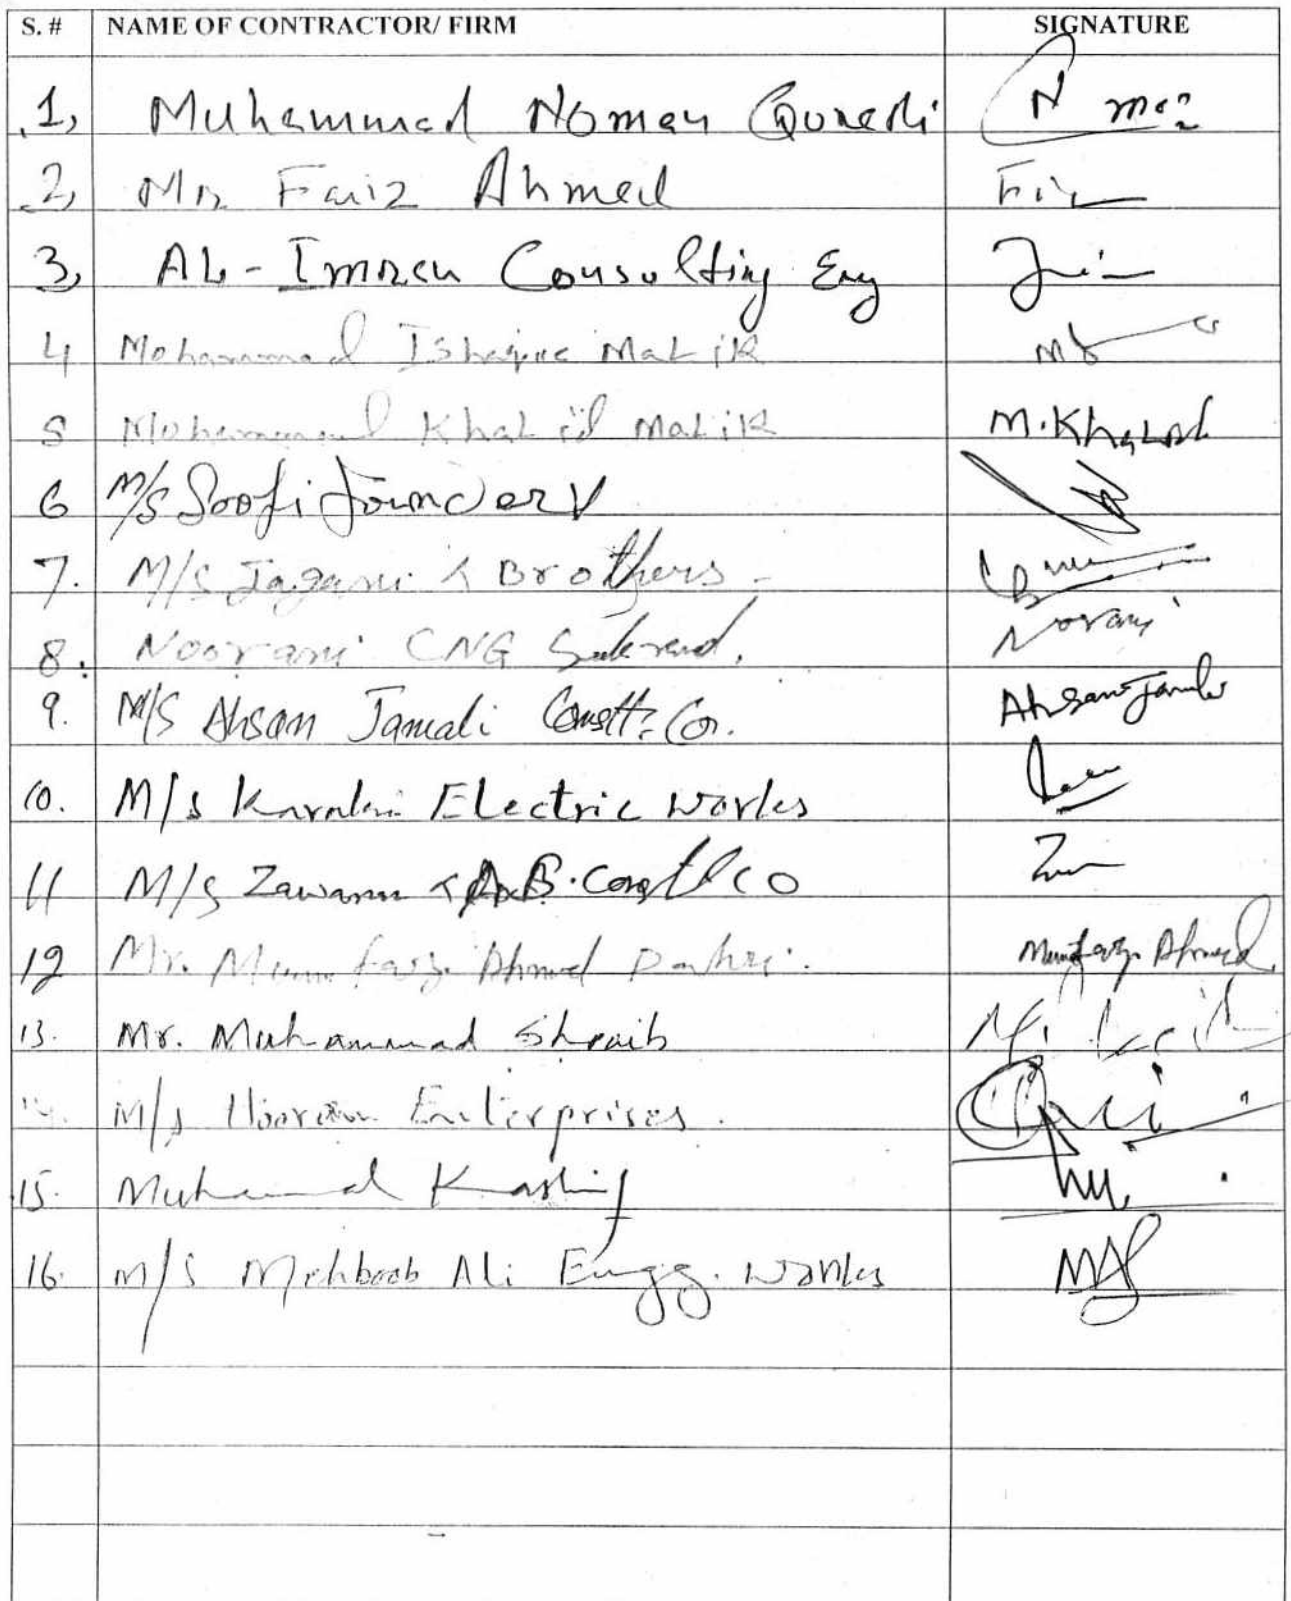 S. # NAME OF CONTRACTOR/ FIRM SIGNATURE
1, Muhammad Noman Qureshi
2, Mr Faiz Ahmed
3, AL-Imran Consulting Eng
4 Mohammad Ishaque Malik
5 Mohammad Khalid Malik M.Khalid
6 M/S Soofi Foundery
7. M/S & Brothers
8. Noorani CNG Sakrand. Norani
9. M/S Ahsan Jamali Constt: Co. Ahsan Jamali
10. M/S Electric Works
11 M/S Zawarun & A.B. Constt Co
12 Mr. Mumtaz Ahmed Dahri. Mumtaz Ahmed
13. Mr. Muhammad Shoaib
14. M/S Enterprises.
15. Muhammad Kashif
16. M/S Mehboob Ali Engg. Works